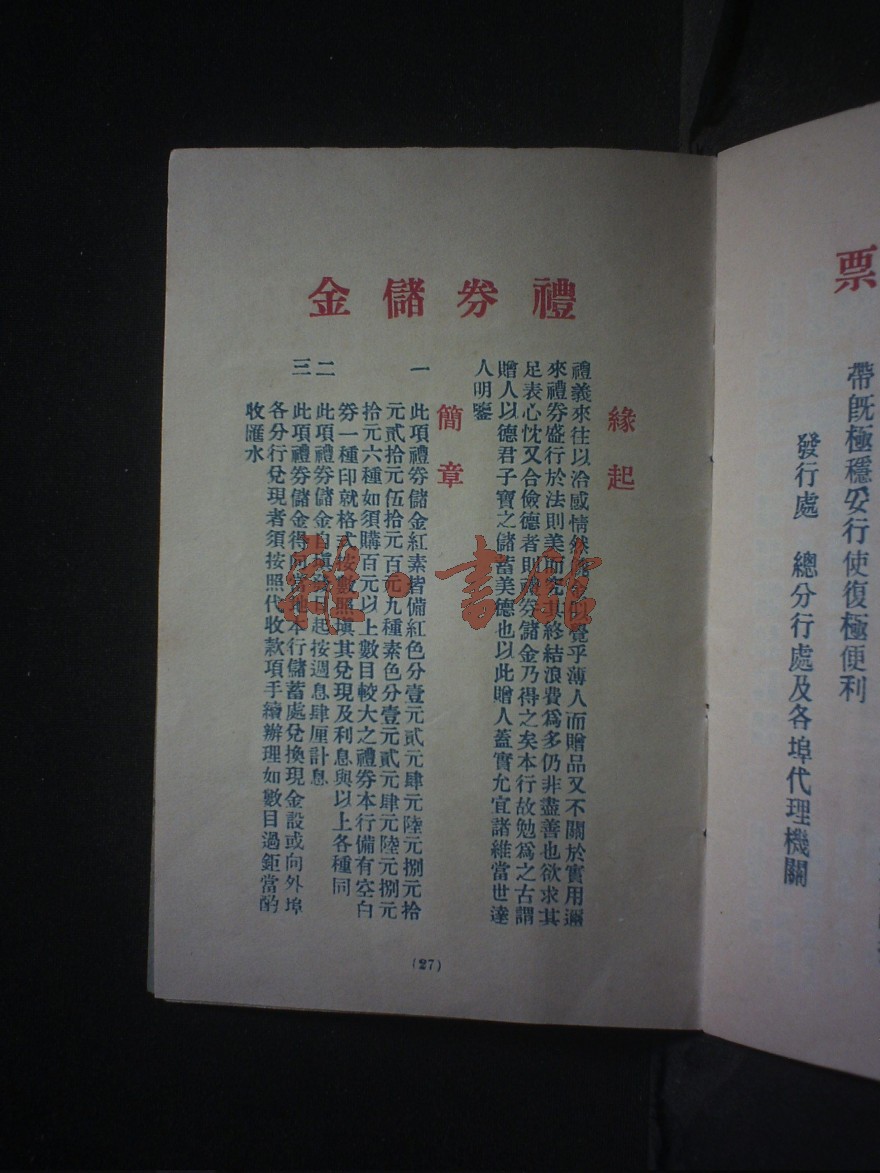 票
帶既極穩妥行使復極便利
發行處 總分行處及各埠代理機關
禮券儲金
緣起
禮義來往以洽感情然金覺乎薄人而贈品又不關於實用邇
來禮券盛行於法則美而究其終結浪費為多仍非盡善也欲求其
足表心忱又合儉德者則禮券儲金乃得之矣本行故勉為之古謂
贈人以德君子寶之儲蓄美德也以此贈人蓋實允宜諸維當世達
人明鑒
簡章
一 此項禮券儲金紅素皆備紅色分壹元貳元肆元陸元捌元拾
元貳拾元伍拾元百元九種素色分壹元貳元肆元陸元捌元
拾元六種如須購百元以上數目較大之禮券本行備有空白
券一種印就格式按數照填其兌現及利息與以上各種同
二 此項禮券儲金自填日起按週息肆厘計息
三 此項禮券儲金得向當地本行儲蓄處兌換現金設或向外埠
各分行兌現者須按照代收款項手續辦理如數目過鉅當酌
收匯水
(27)
雜·書館